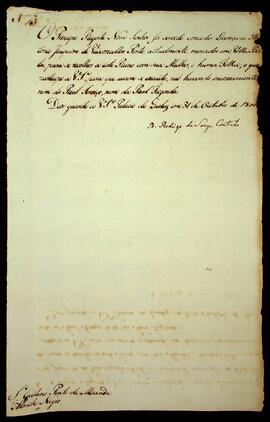 O Principe Regente Nosso Senhor, foi servido conceder licença a
Joaquim de Vasconcellos actualmente morador em
para se recolher a este Reino com sua Mulher, e huma Filha; o que
participo a V. S.ª para que assim o execute, não havendo inconveniente,
nem do Real Serviço, nem da Real Fazenda.
Deos guarde a V. S.ª Palacio de Queluz em 31 de Outubro de
D. Rodrigo de Souza Coutinho
S.r Caetano Pinto de Miranda
Montenegro